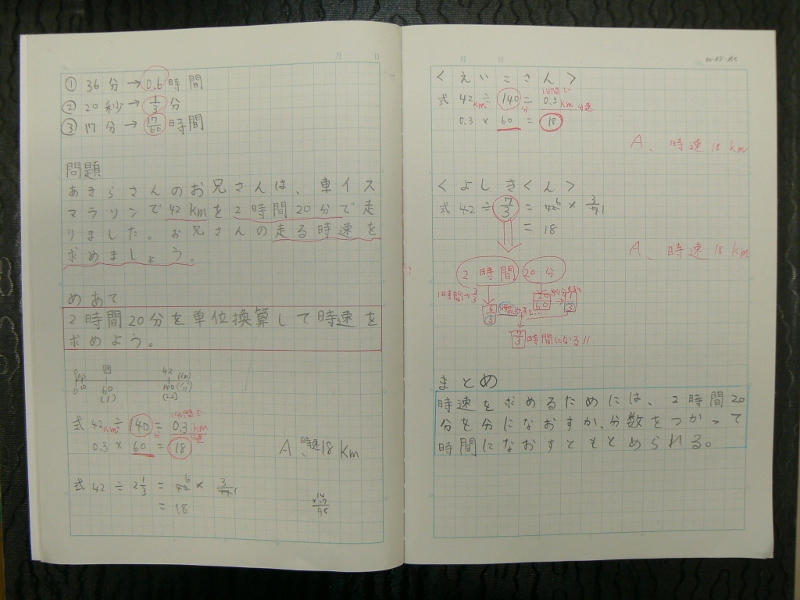 ① 36分→0.6時間
② 20秒→1/3分
③ 17分→17/60時間
問題
あきらさんのお兄さんは、車イス
マラソンで42kmを2時間20分で走
りました。お兄さんの走る時速を
求めましょう。
めあて
2時間20分を単位換算して時速を
求めよう。
42
60
140
式 42km÷140=0.3km
0.3×60=18
A、時速18km
式 42÷2 1/3=42×3/7
=18
月 日
<えいこさん>
式 42km÷140=0.3km
0.3×60=18
A、時速18km
<よしきくん>
式 42÷7/3=42×3/7
=18
A、時速18km
2時間20分
7/3時間になる!!
まとめ
時速を求めるためには、2時間20
分を分になおすか、分数をつかって
時間になおすともとめられる。